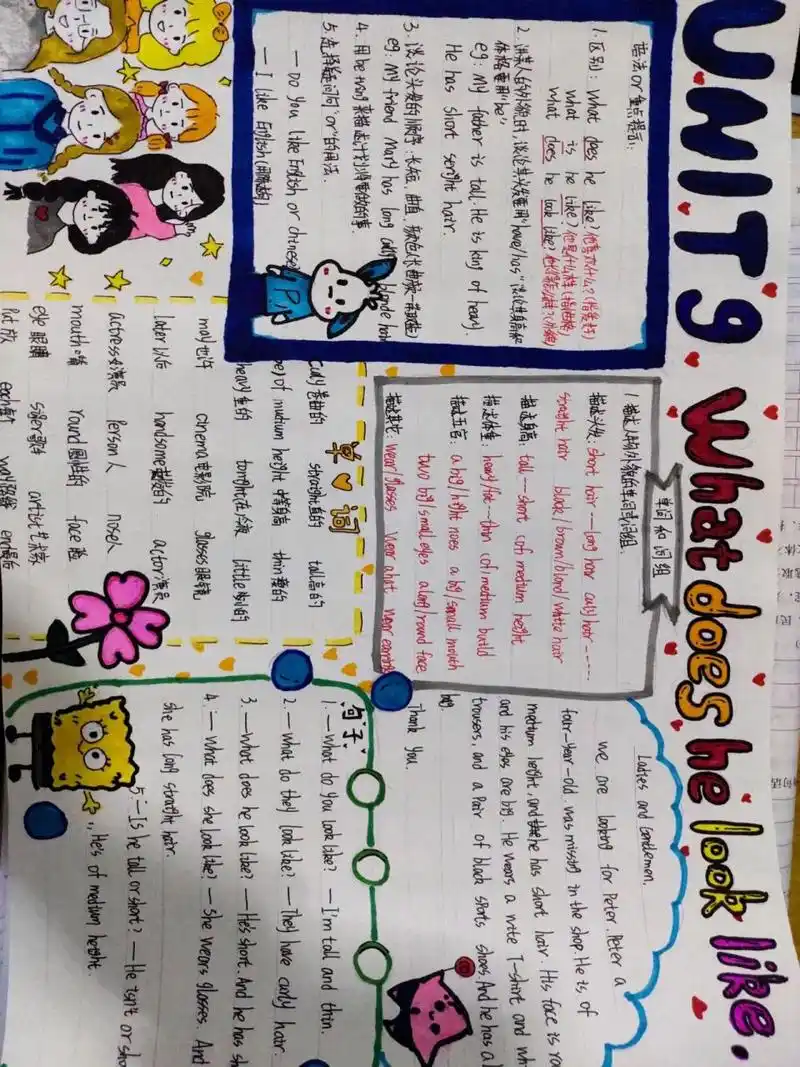 UNIT 9. What does he look like.
语法or重点提示:
1.区别: what does he like?他喜欢什么?(指爱好)
what is he like?他是什么样(指性格)
what does he look like?他长得怎么样?(外貌)
2.
eg: My father is tall. He is kind of heavy.
He has short
3.谈论头发的顺序:长短,曲直,颜色
eg: My friend Mary has long curly blonde
4.用be
5.选择疑问句"or"的用法.
— Do you like English or Chinese
— I like English
单词和词组
1.描述人的外貌的单词或词组:
描述头发: short hair — long hair curly hair ----
straight hair black/brown/blond/white hair
描述身高: tall — short of medium height
描述体重: heavy/fat — thin of medium build
描述五官: a big/ noses a big/small mouth
two big/small eyes a long/round face
描述其它: wear/glasses wear a hat
单词
curly 卷曲的 straight 直的 tall 高的
of medium height 中等身高 thin 瘦的
heavy 重的 tonight 在今晚 little
may 也许 cinema 电影院 glasses 眼镜
later 以后 handsome actor 演员
actress 女演员 person 人 nose
mouth 嘴 round 圆形的 face 脸
eye 眼睛 artist 艺术家
each 每个 way 路线 end 最后
Ladies and Gentlemen.
We are looking for Peter. Peter a
four-year-old was missing in the shop. He is of
medium height. and he has short hair. His face is
and his eyes are big. He wears a T-shirt and
trousers, and a pair of black sports shoes. And he has a
Thank you.
句子:
1.— What do you look like? — I'm tall and thin.
2.— What do they look like? — They have curly hair.
3.— What does he look like? — He's short. And he has
4.— What does she look like? — She wears glasses. And
she has long straight hair.
5.— Is he tall or short? — He isn't
He's of medium height.